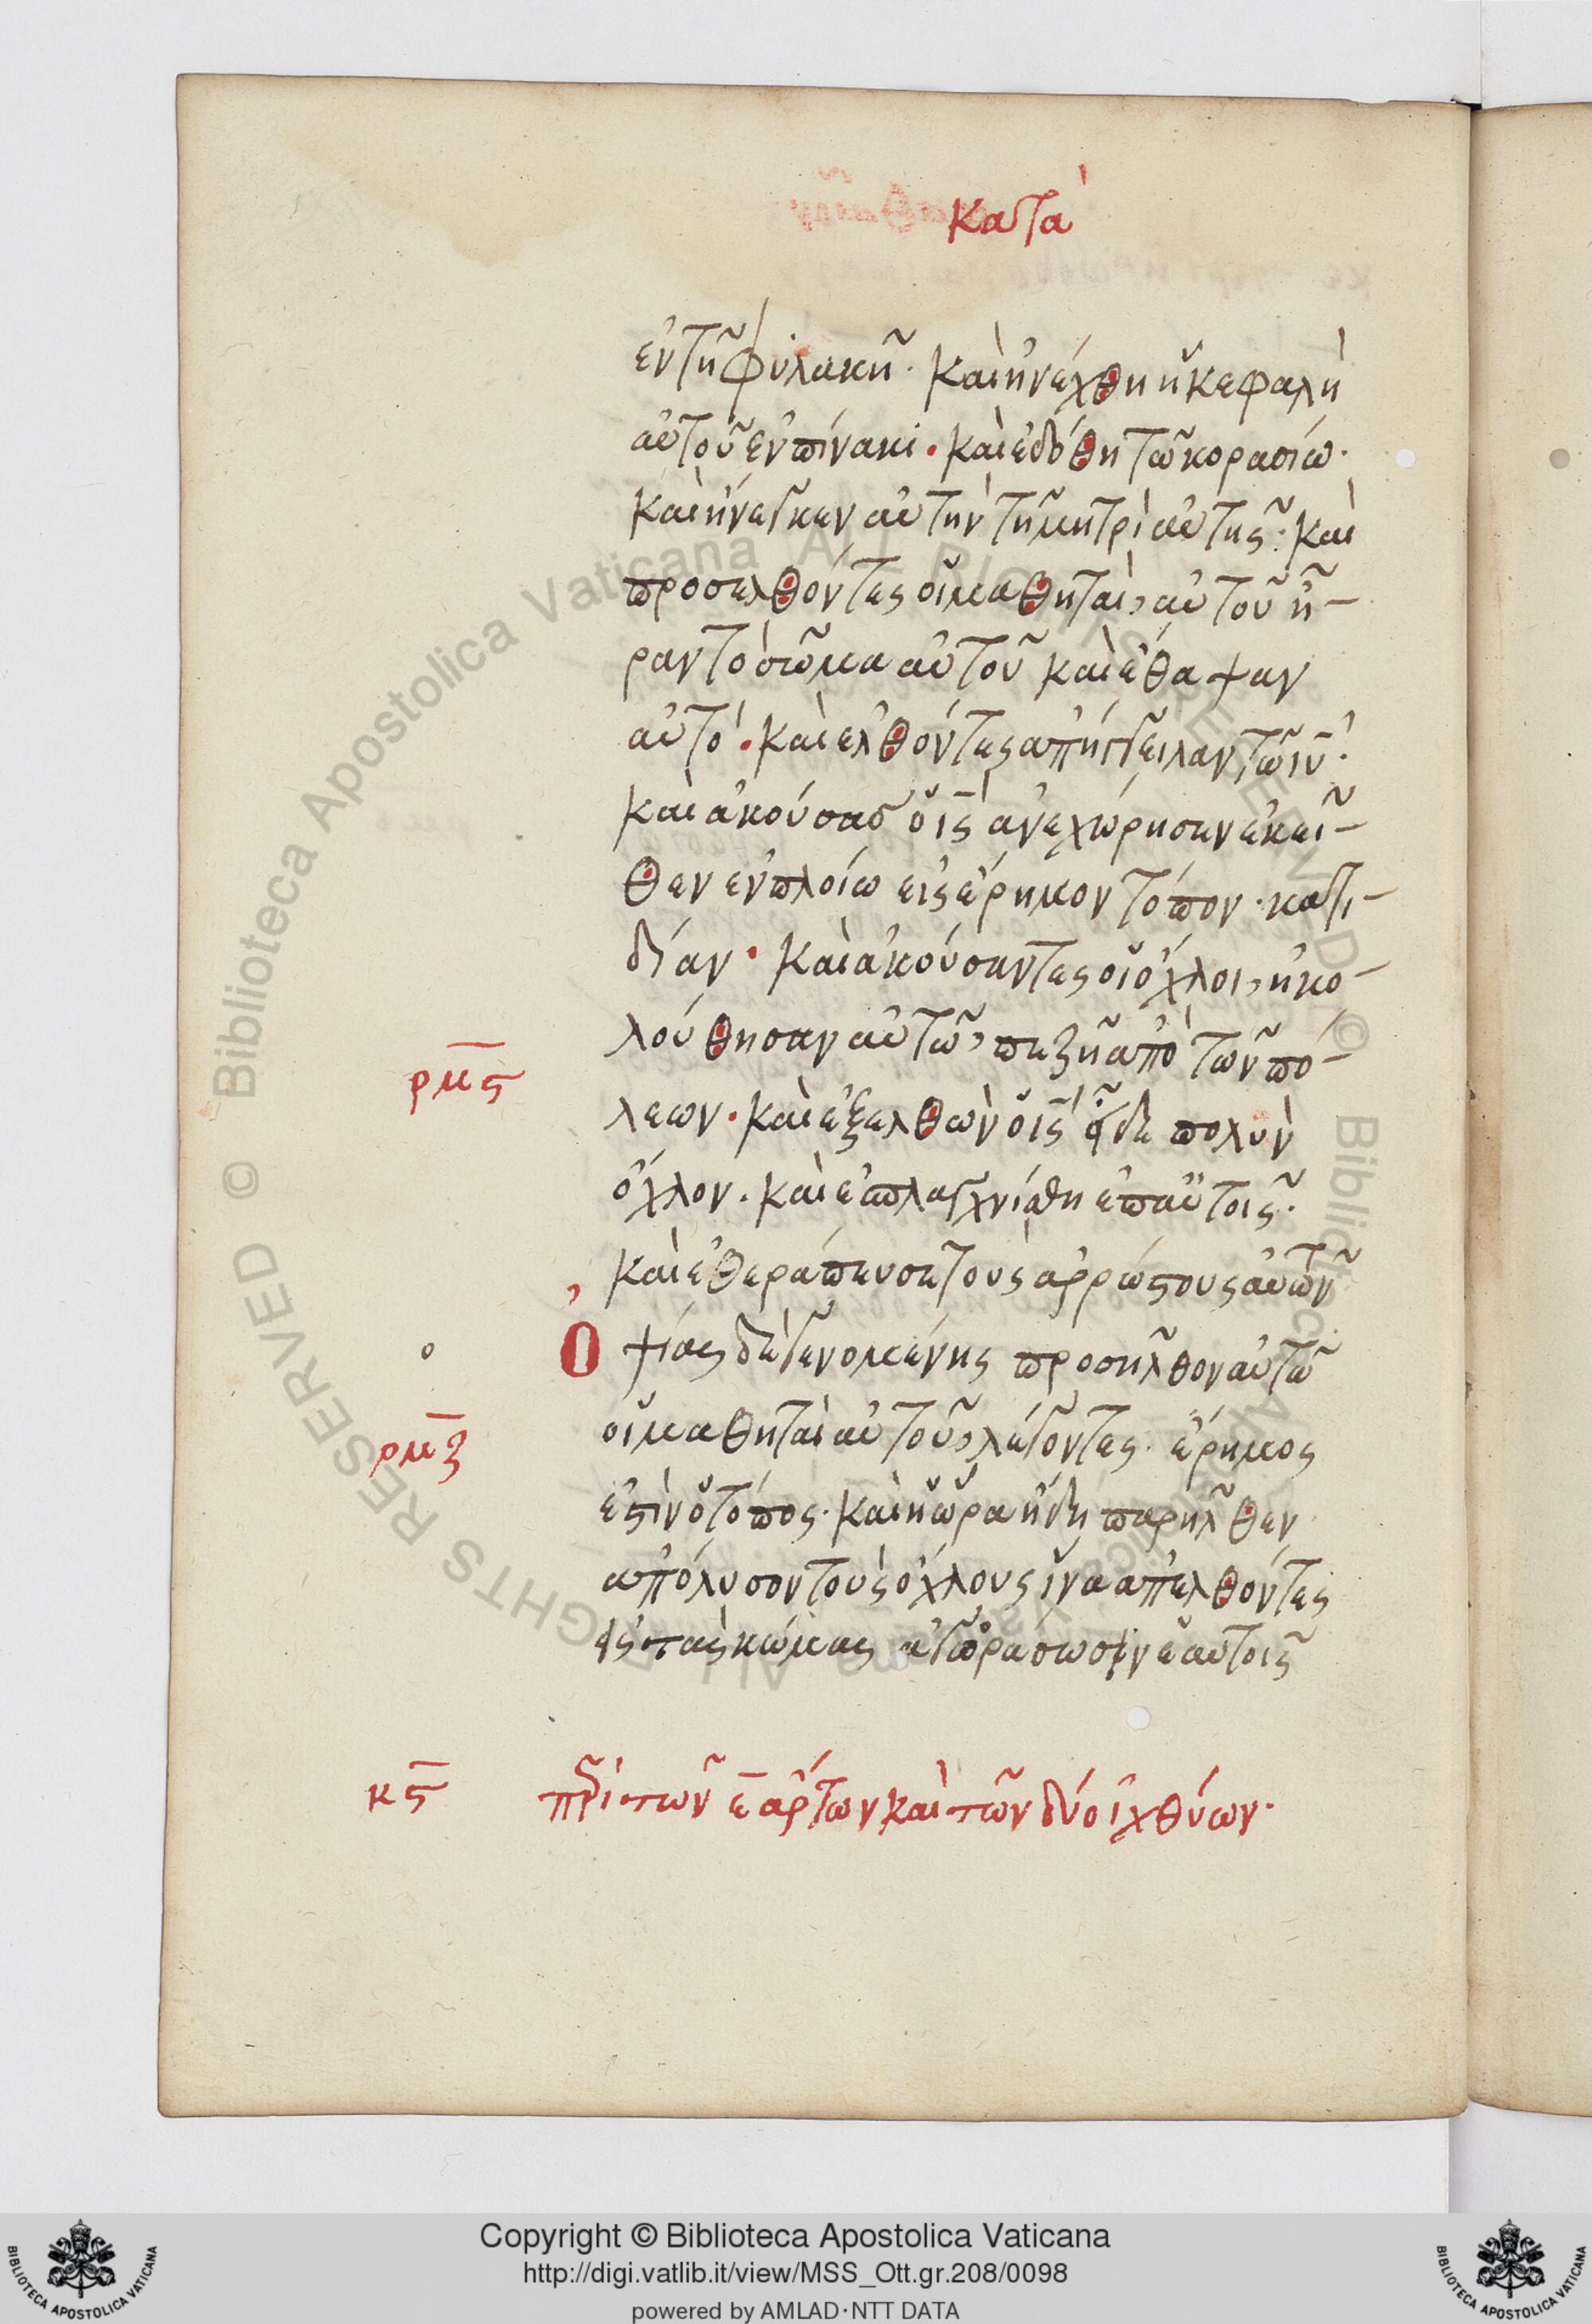 κατὰ
ἐν τῆ φυλακῆ. καὶ ἠνέχθη ἡ κεφαλὴ
αὐτοῦ ἐν πίνακι. καὶ ἐδόθη τῶ κορασίω.
καὶ ἤνεγκεν αὐτὴν τῆ μητρὶ αὐτῆς. καὶ
προσελθόντες οἱ μαθηταὶ, αὐτοῦ ἦ-
ραν τὸ σῶμα αὐτοῦ καὶ ἔθαψαν
αὐτό. καὶ ἐλθόντες ἀπήγγειλαν τῶ ιυ̅.
καὶ ἀκούσας ὁ ις̅ ἀνεχώρησεν ἐκεῖ-
θεν ἐν πλοίω εἰς ἔρημον τόπον. κατι-
δίαν. καὶ ἀκούσαντες οἱ ὄχλοι, ἠκο-
λούθησαν αὐτῶ, πεζῆ ἀπὸ τῶν πό-
ρμϛ
λεων. καὶ ἐξελθὼν ὁ ις̅ εἶδε πολὺν
ὄχλον. καὶ ἐσπλαγχνίσθη ἐπ αὐτοῖς.
καὶ ἐθεράπευσε τοὺς ἀρρώστους αὐτῶν
Ὀψίας δὲ γενομένης προσῆλθον αὐτῶ
οἱ μαθηταὶ αὐτοῦ, λέγοντες. ἔρημος
ρμζ
ἐστὶν ὁ τόπος. καὶ ἡ ὥρα ἤδη παρῆλθεν
ἀπόλυσον τοὺς ὄχλους ἵνα ἀπελθόντες
εἰς τὰς κώμας ἀγωράσωσιν ἑαυτοῖς
κϛ περὶ τῶν ε̅ ἄρτων καὶ τῶν δύο ἰχθύων.
Biblioteca Apostolica Vaticana ALL RIGHTS RESERVED ©
Copyright © Biblioteca Apostolica Vaticana
http://digi.vatlib.it/view/MSS_Ott.gr.208/0098
powered by AMLAD·NTT DATA
BIBLIOTECA APOSTOLICA VATICANA
BIBLIOTECA APOSTOLICA VATICANA